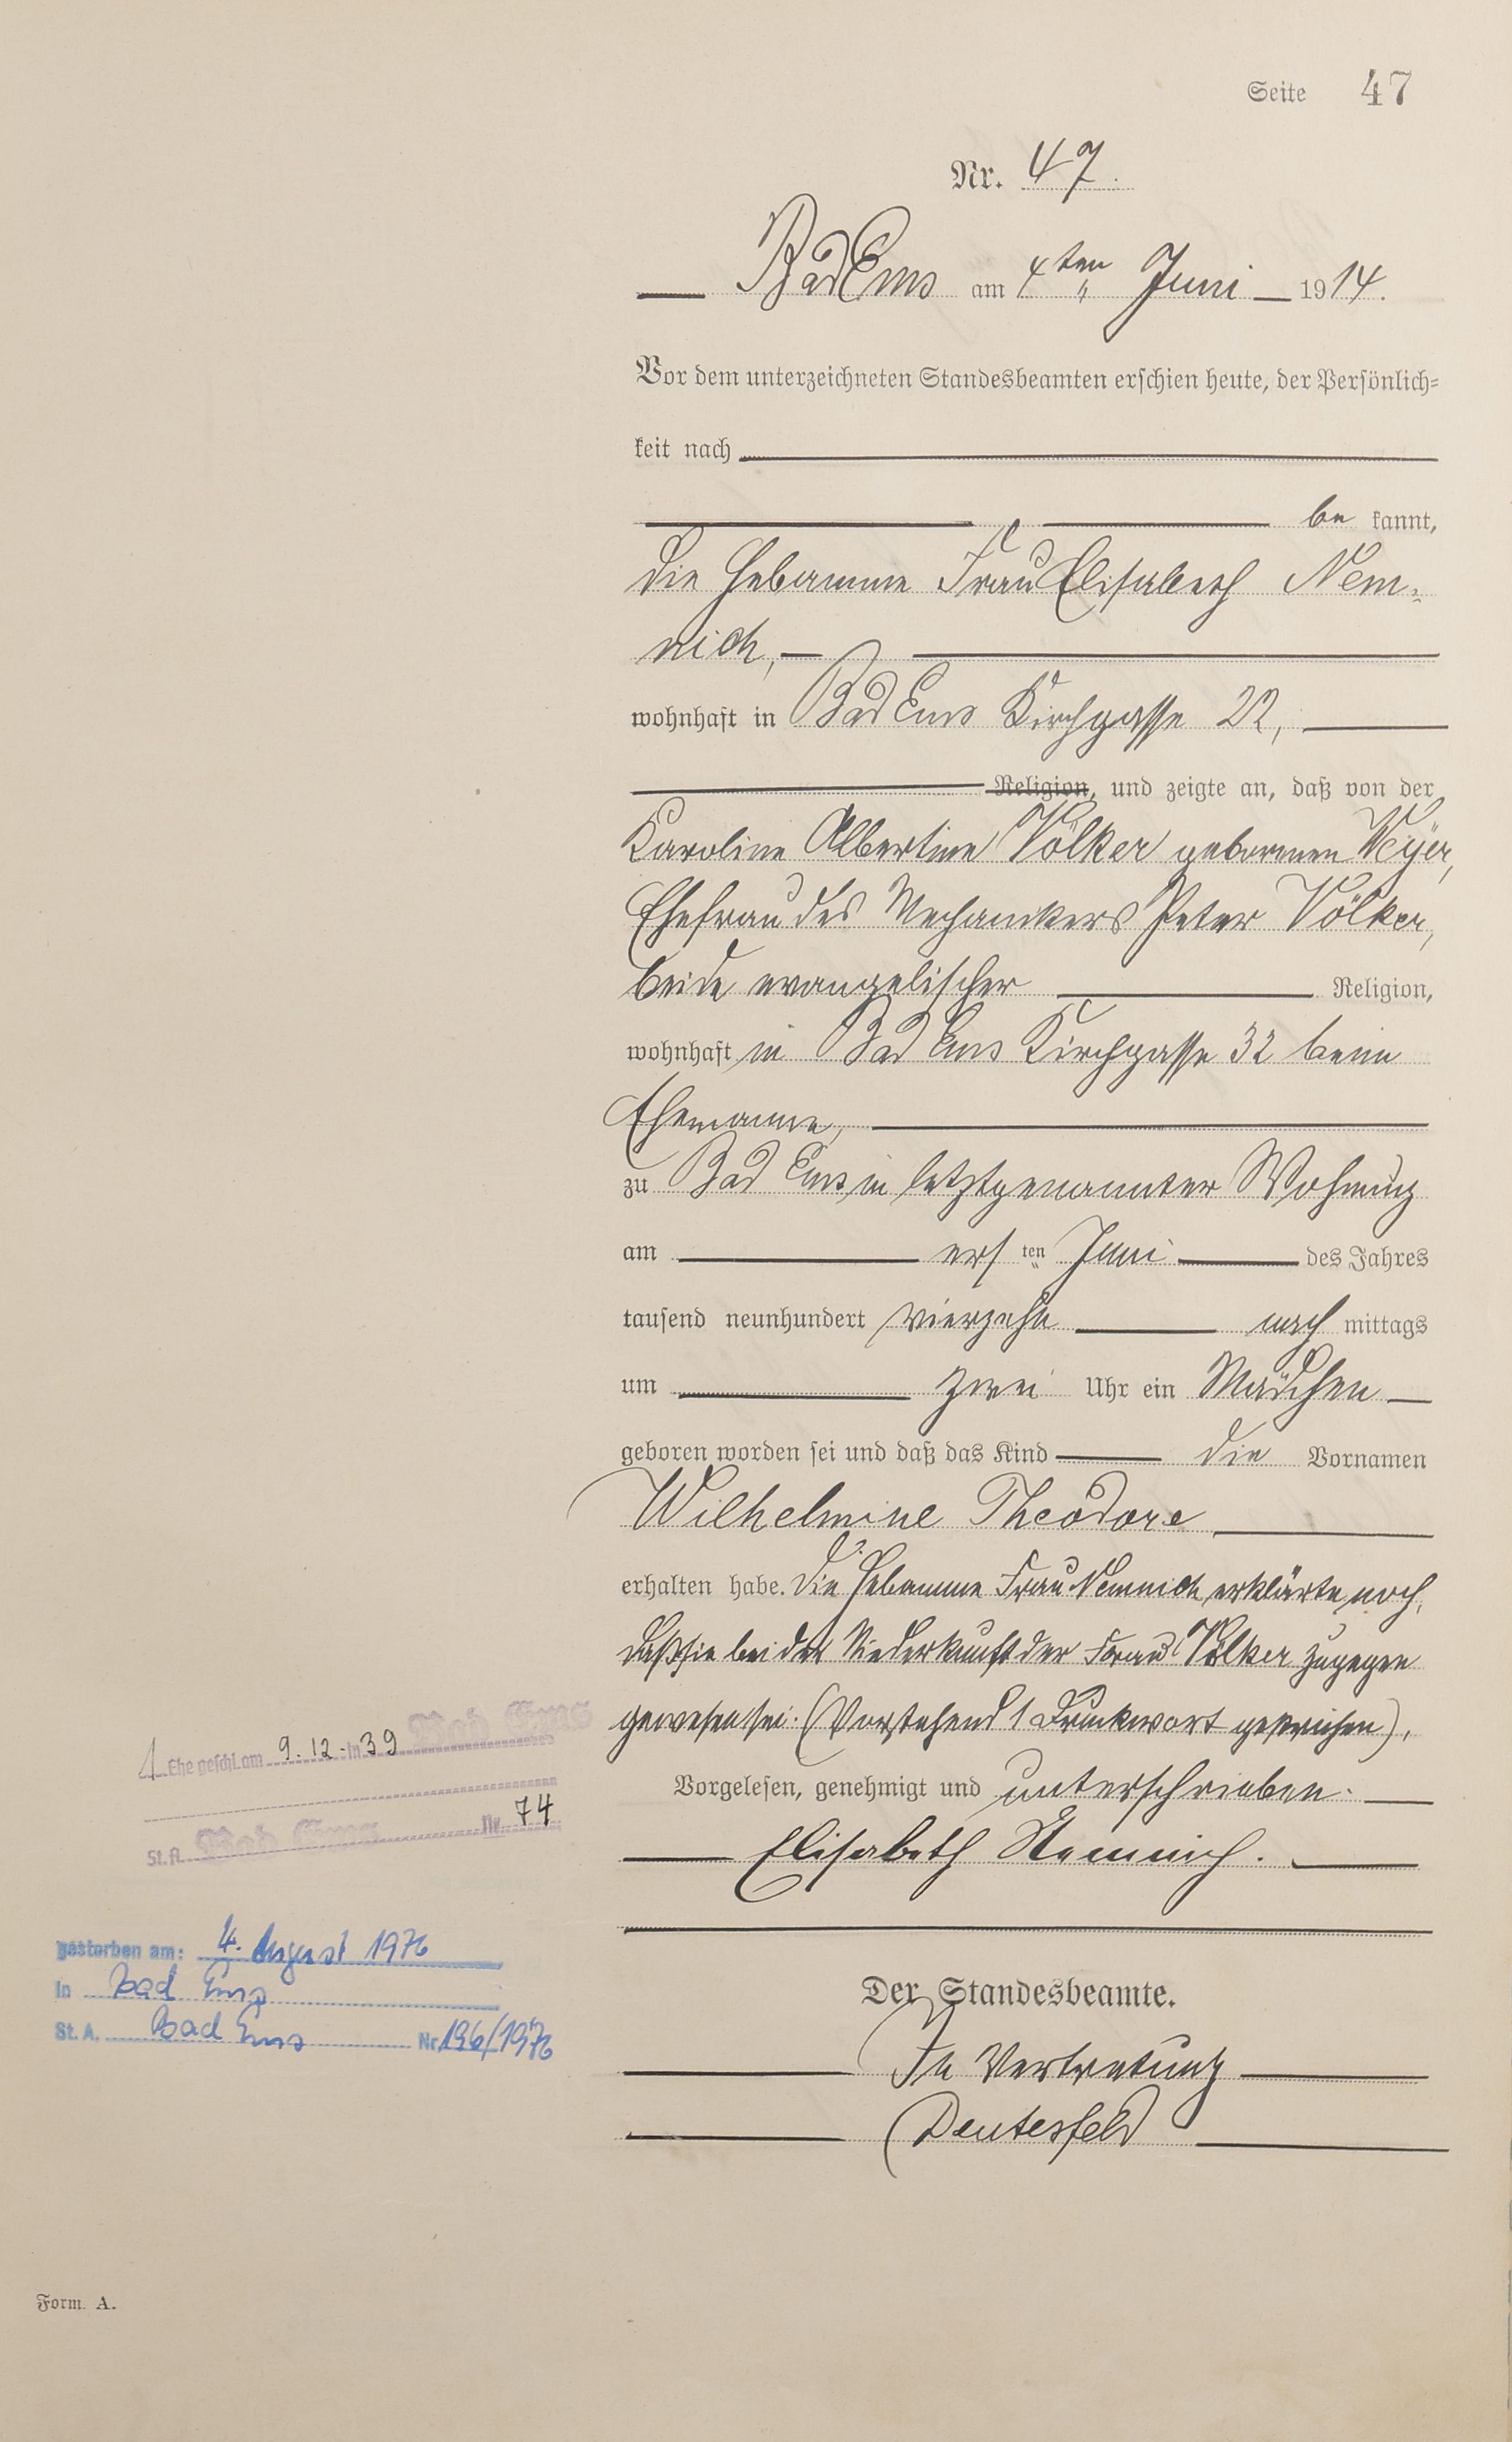 Seite 47
Nr. 47.
Bad Ems am 4ten Juni 1914.
Vor dem unterzeichneten Standesbeamten erschien heute, der Persönlich-
keit nach
be kannt,
die Hebamme Frau Elisabeth Nem-
nich,
wohnhaft in Bad Ems Kirchgasse 22,
Religion, und zeigte an, daß von der
Karoline Albertine Völker geborenen Weyer,
Ehefrau des Mechanikers Peter Völker,
beide evangelischer Religion,
wohnhaft in Bad Ems Kirchgasse 32 beim
Ehemanne,
zu Bad Ems in letztgenannter Wohnung
am ers ten Juni des Jahres
tausend neunhundert vierzehn nach mittags
um zwei Uhr ein Mädchen
geboren worden sei und daß das Kind die Vornamen
Wilhelmine Theodore
erhalten habe. Die Hebamme Frau Nemnich erklärte noch,
daß sie bei der Niederkunft der Frau Völker zugegen
gewesen sei. (Vorstehend 1 Druckwort gestrichen).
Vorgelesen, genehmigt und unterschrieben.
Elisabeth Nemnich.
Der Standesbeamte.
In Vertretung
Deutesfeld
1 Ehe geschl. am 9.12.39 in Bad Ems
St. A. Bad Ems Nr. 74
gestorben am: 4. August 1976
in Bad Ems
St. A. Bad Ems Nr. 196/1976
Form. A.